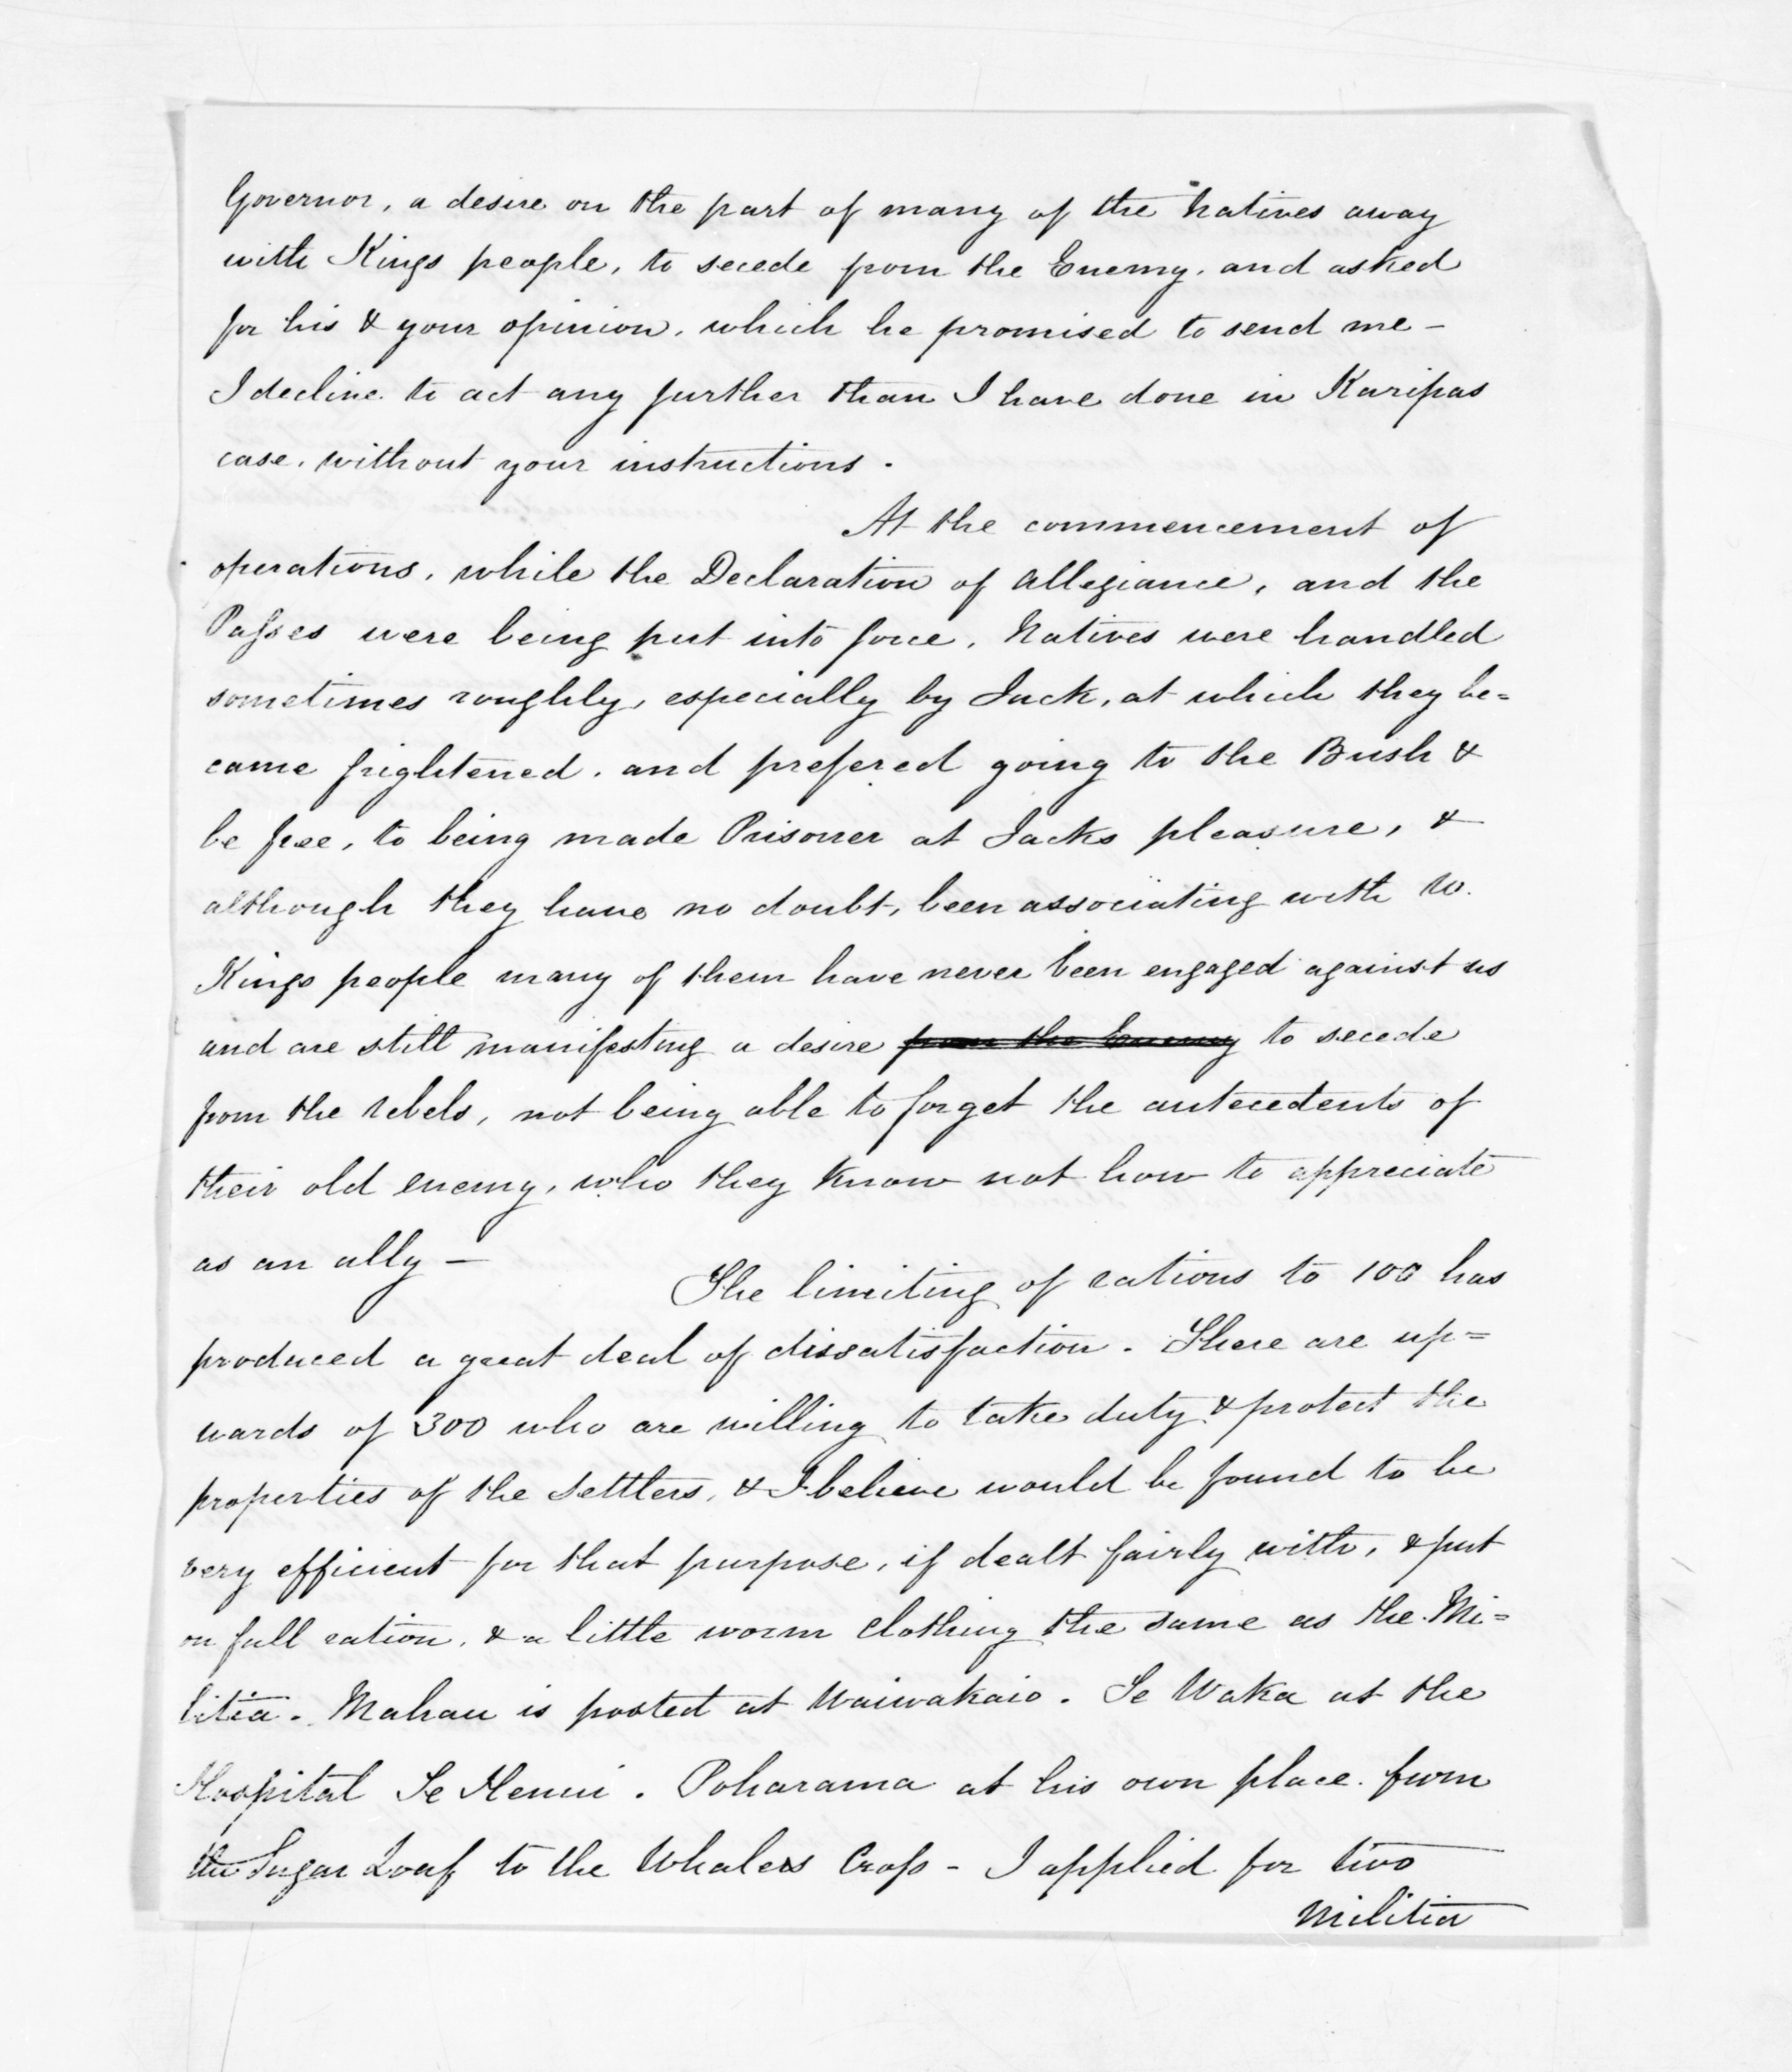 Governor, a desire on the part of many of the Natives away
with Kings people, to secede from the Enemy. and asked
for his & your opinion, which he promised to send me -
I decline to act any further than I have done in Karipas
case, without your instructions.
At the commencement of
operations, while the Declaration of Allegiance, and the
Passes were being put into force, Natives were handled
sometimes roughly, especially by Jack, at which they be=
came frightened. and prefered going to the Bush &
be free, to being made Prisoner at Jacks pleasure, &
although they have no doubt, been associating with W.
Kings people many of them have never been engaged against us
and are still manifesting a desire from the Enemy to secede
from the rebels, not being able to forget the antecedents of
their old enemy, who they know not how to appreciate
as an ally —
The limiting of rations to 100 has
produced a great deal of dissatisfaction. There are up=
wards of 300 who are willing to take duty & protect the
properties of the Settlers, & I believe would be found to be
very efficient for that purpose, if dealt fairly with, & put
on full ration, & a little worm clothing the same as the Mi=
litia. Mahau is posted at Waiwakaio. Te Waka at the
Hospital Te Henui. Poharama at his own place. from
the Sugar Loaf to the Whalers Cross - I applied for two
Militia